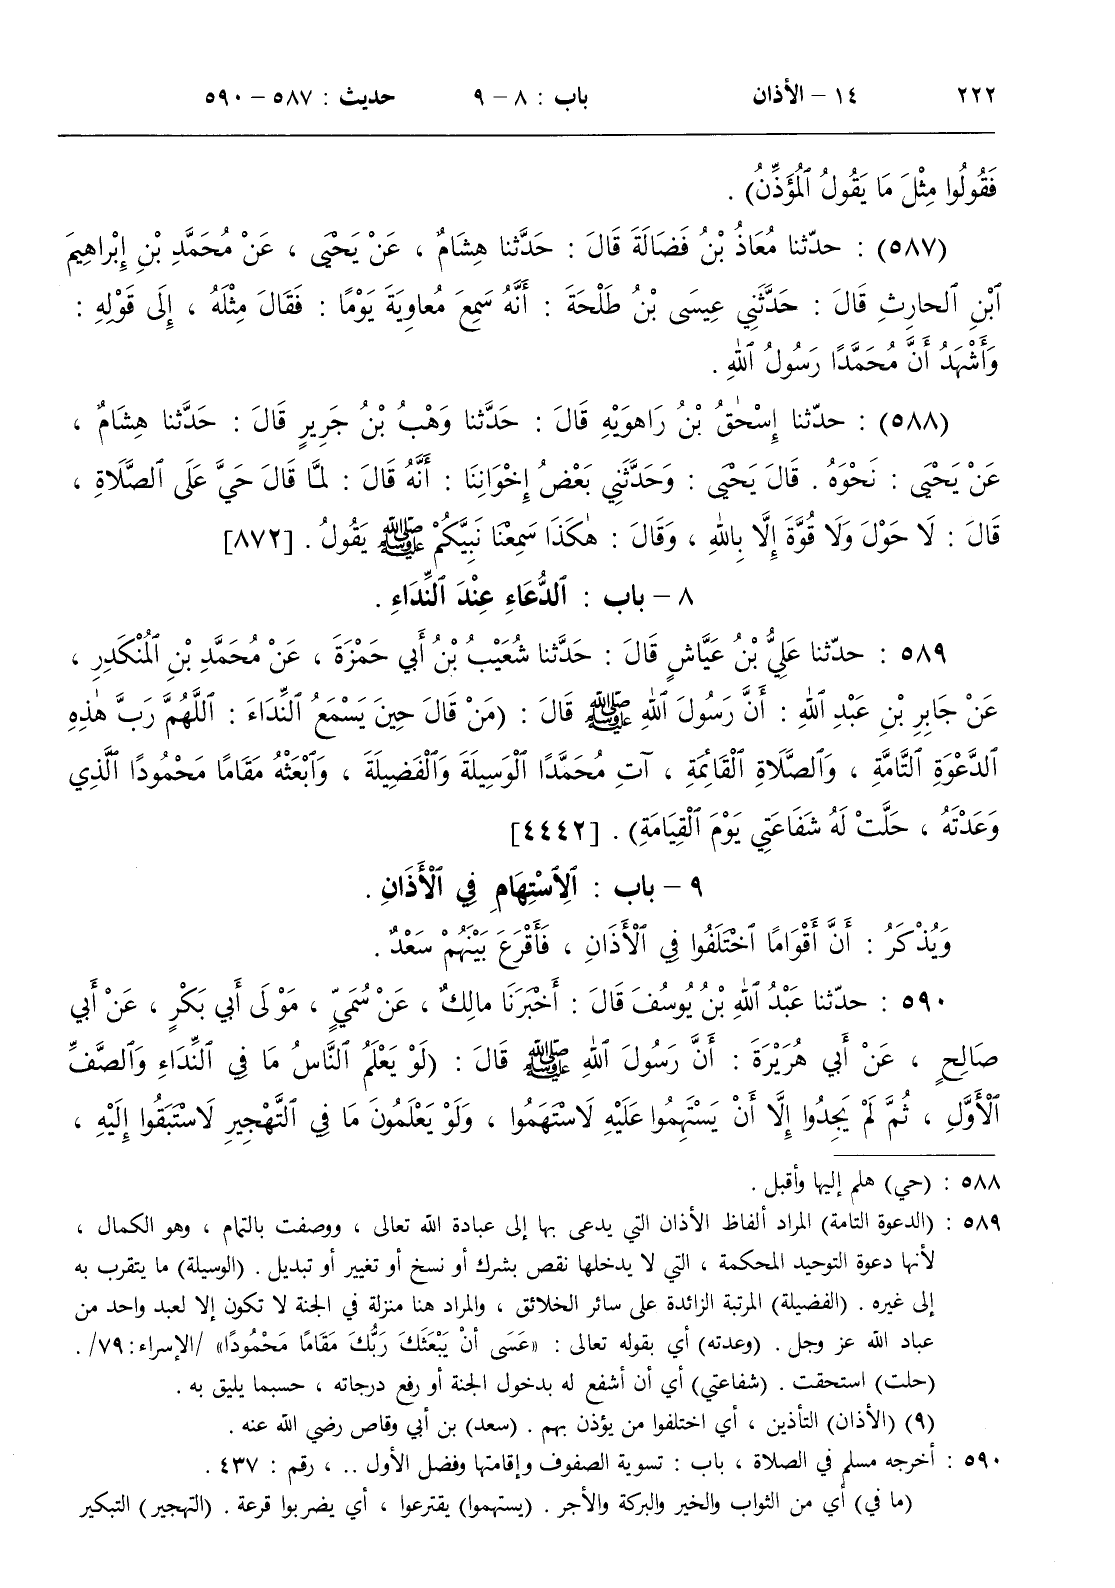 ٢٢٢ ١٤ – الأذان باب : ٨ – ٩ حديث : ٥٨٧ – ٥٩٠
فَقُولُوا مِثْلَ مَا يَقُولُ ٱلْمُؤَذِّنُ) .
(٥٨٧) : حدّثنا مُعَاذُ بْنُ فَضَالَةَ قَالَ : حَدَّثنا هِشَامٌ ، عَنْ يَحْيَى ، عَنْ مُحَمَّدِ بْنِ إِبْراهِيمَ
ٱبْنِ ٱلحارِثِ قَالَ : حَدَّثَنِي عِيسَى بْنُ طَلْحَةَ : أَنَّهُ سَمِعَ مُعاوِيَةَ يَوْمًا : فَقَالَ مِثْلَهُ ، إِلَى قَوْلِهِ :
وَأَشْهَدُ أَنَّ مُحَمَّدًا رَسُولُ ٱللهِ .
(٥٨٨) : حدّثنا إِسْحٰقُ بْنُ رَاهَوَيْهِ قَالَ : حَدَّثنا وَهْبُ بْنُ جَرِيرٍ قَالَ : حَدَّثنا هِشَامٌ ،
عَنْ يَحْيَى : نَحْوَهُ . قَالَ يَحْيَى : وَحَدَّثَنِي بَعْضُ إِخْوَانِنَا : أَنَّهُ قَالَ : لمَّا قَالَ حَيَّ عَلَى ٱلصَّلَاةِ ،
قَالَ : لَا حَوْلَ وَلَا قُوَّةَ إِلَّا بِٱللهِ ، وَقَالَ : هٰكَذَا سَمِعْنَا نَبِيَّكُمْ ﷺ يَقُولُ . [٨٧٢]
٨ – باب : ٱلدُّعَاءِ عِنْدَ ٱلنِّدَاءِ .
٥٨٩ : حدّثنا عَلِيُّ بْنُ عَيَّاشٍ قَالَ : حَدَّثنا شُعَيْبُ بْنُ أَبِي حَمْزَةَ ، عَنْ مُحَمَّدِ بْنِ ٱلْمُنْكَدِرِ ،
عَنْ جَابِرِ بْنِ عَبْدِ ٱللهِ : أَنَّ رَسُولَ ٱللهِ ﷺ قَالَ : (مَنْ قَالَ حِينَ يَسْمَعُ ٱلنِّدَاءَ : ٱللَّهُمَّ رَبَّ هٰذِهِ
ٱلدَّعْوَةِ ٱلتَّامَّةِ ، وَٱلصَّلَاةِ ٱلْقَائِمَةِ ، آتِ مُحَمَّدًا ٱلْوَسِيلَةَ وَٱلْفَضِيلَةَ ، وَٱبْعَثْهُ مَقَامًا مَحْمُودًا ٱلَّذِي
وَعَدْتَهُ ، حَلَّتْ لَهُ شَفَاعَتِي يَوْمَ ٱلْقِيَامَةِ) . [٤٤٤٢]
٩ – باب : ٱلِٱسْتِهَامِ فِي ٱلْأَذَانِ .
وَيُذْكَرُ : أَنَّ أَقْوَامًا ٱخْتَلَفُوا فِي ٱلْأَذَانِ ، فَأَقْرَعَ بَيْنَهُمْ سَعْدٌ .
٥٩٠ : حدّثنا عَبْدُ ٱللهِ بْنُ يُوسُفَ قَالَ : أَخْبَرَنَا مالِكٌ ، عَنْ سُمَيٍّ ، مَوْلَى أَبِي بَكْرٍ ، عَنْ أَبِي
صَالِحٍ ، عَنْ أَبِي هُرَيْرَةَ : أَنَّ رَسُولَ ٱللهِ ﷺ قَالَ : (لَوْ يَعْلَمُ ٱلنَّاسُ مَا فِي ٱلنِّدَاءِ وَٱلصَّفِّ
ٱلْأَوَّلِ ، ثُمَّ لَمْ يَجِدُوا إِلَّا أَنْ يَسْتَهِمُوا عَلَيْهِ لَاسْتَهَمُوا ، وَلَوْ يَعْلَمُونَ مَا فِي ٱلتَّهْجِيرِ لَاسْتَبَقُوا إِلَيْهِ ،
٥٨٨ : (حي) هلم إليها وأقبل .
٥٨٩ : (الدعوة التامة) المراد ألفاظ الأذان التي يدعى بها إلى عبادة الله تعالى ، ووصفت بالتمام ، وهو الكمال ،
لأنها دعوة التوحيد المحكمة ، التي لا يدخلها نقص بشرك أو نسخ أو تغيير أو تبديل . (الوسيلة) ما يتقرب به
إلى غيره . (الفضيلة) المرتبة الزائدة على سائر الخلائق ، والمراد هنا منزلة في الجنة لا تكون إلا لعبد واحد من
عباد الله عز وجل . (وعدته) أي بقوله تعالى : «عَسَى أَنْ يَبْعَثَكَ رَبُّكَ مَقَامًا مَحْمُودًا» /الإسراء:٧٩/.
(حلت) استحقت . (شفاعتي) أي أن أشفع له بدخول الجنة أو رفع درجاته ، حسبما يليق به .
(٩) (الأذان) التأذين ، أي اختلفوا من يؤذن بهم . (سعد) بن أبي وقاص رضي الله عنه .
٥٩٠ : أخرجه مسلم في الصلاة ، باب : تسوية الصفوف وإقامتها وفضل الأول .. ، رقم : ٤٣٧ .
(ما في) أي من الثواب والخير والبركة والأجر . (يستهموا) يقترعوا ، أي يضربوا قرعة . (التهجير) التبكير